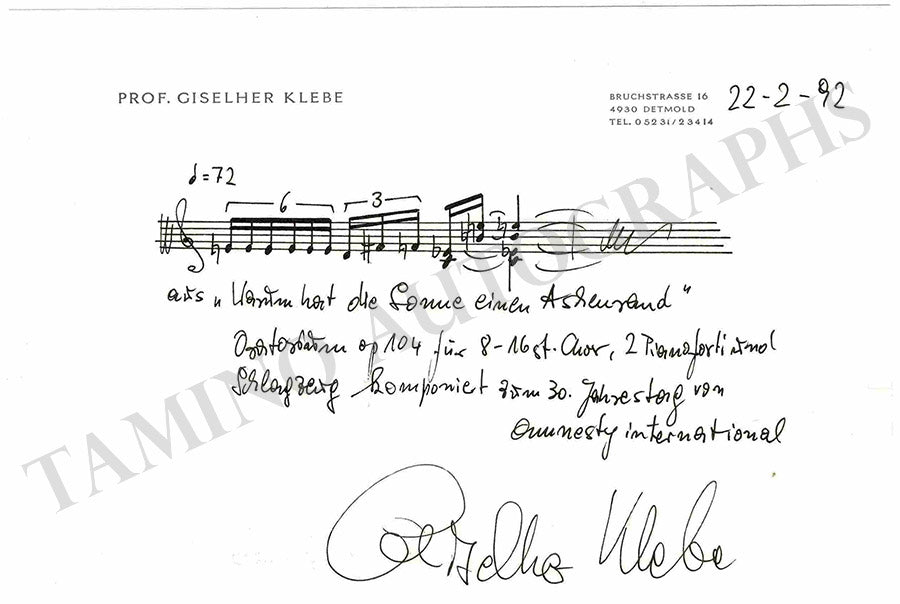 PROF. GISELHER KLEBE
BRUCHSTRASSE 16
4930 DETMOLD
TEL. 05231/23414
22-2-92
♩=72
6 3
aus „Warum hat die Sonne einen Aschenrand"
Oratorium op 104 für 8-16st. Chor, 2 Pianoforti und
Schlagzeug komponiert zum 30. Jahrestag von
Amnesty international
Giselher Klebe
TAMINO AUTOGRAPHS